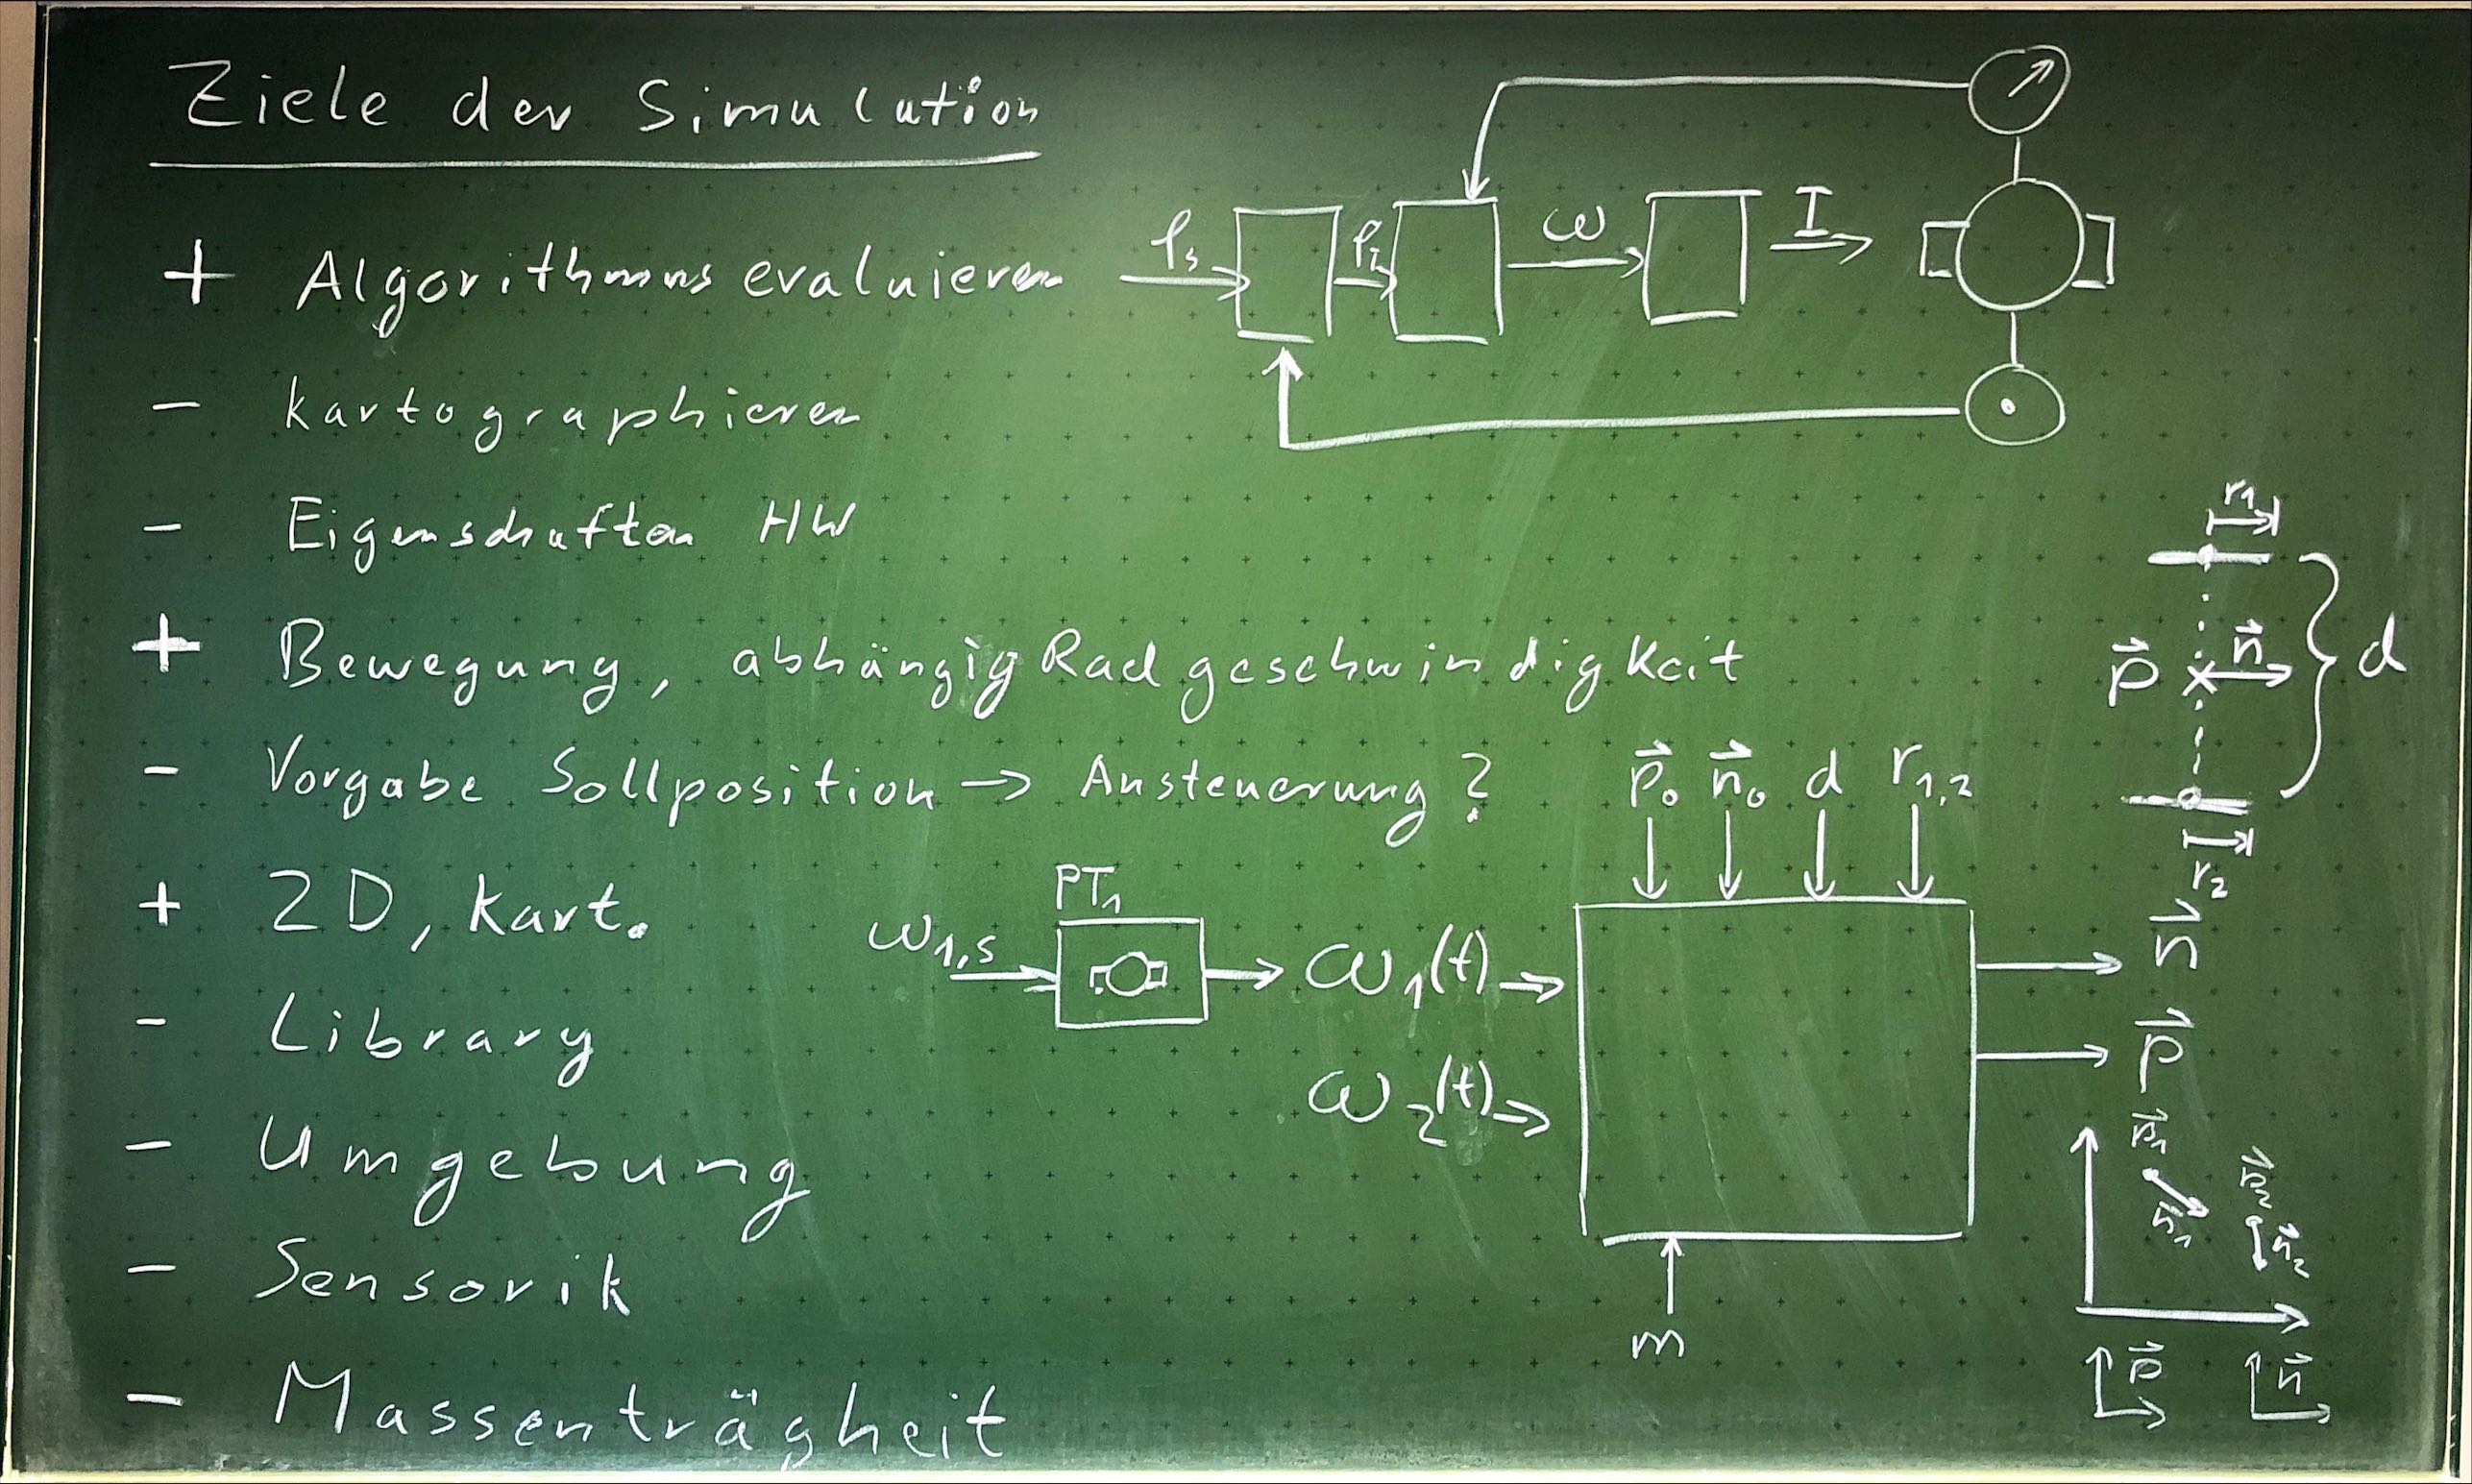 Ziele der Simulation
+ Algorithmus evaluieren
- kartographieren
- Eigenschaften HW
+ Bewegung, abhängig Radgeschwindigkeit
- Vorgabe Sollposition → Ansteuerung?
+ 2D, kart.
- Library
- Umgebung
- Sensorik
- Massenträgheit
ω
I
r₁
p⃗ n⃗ d
r₂
p⃗₀ n⃗₀ d r₁,₂
PT₁
ω₁,s
ω₁(t)
ω₂(t)
n⃗
p⃗
m
p⃗₁
n⃗₁
p⃗₂
n⃗₂
p⃗ n⃗